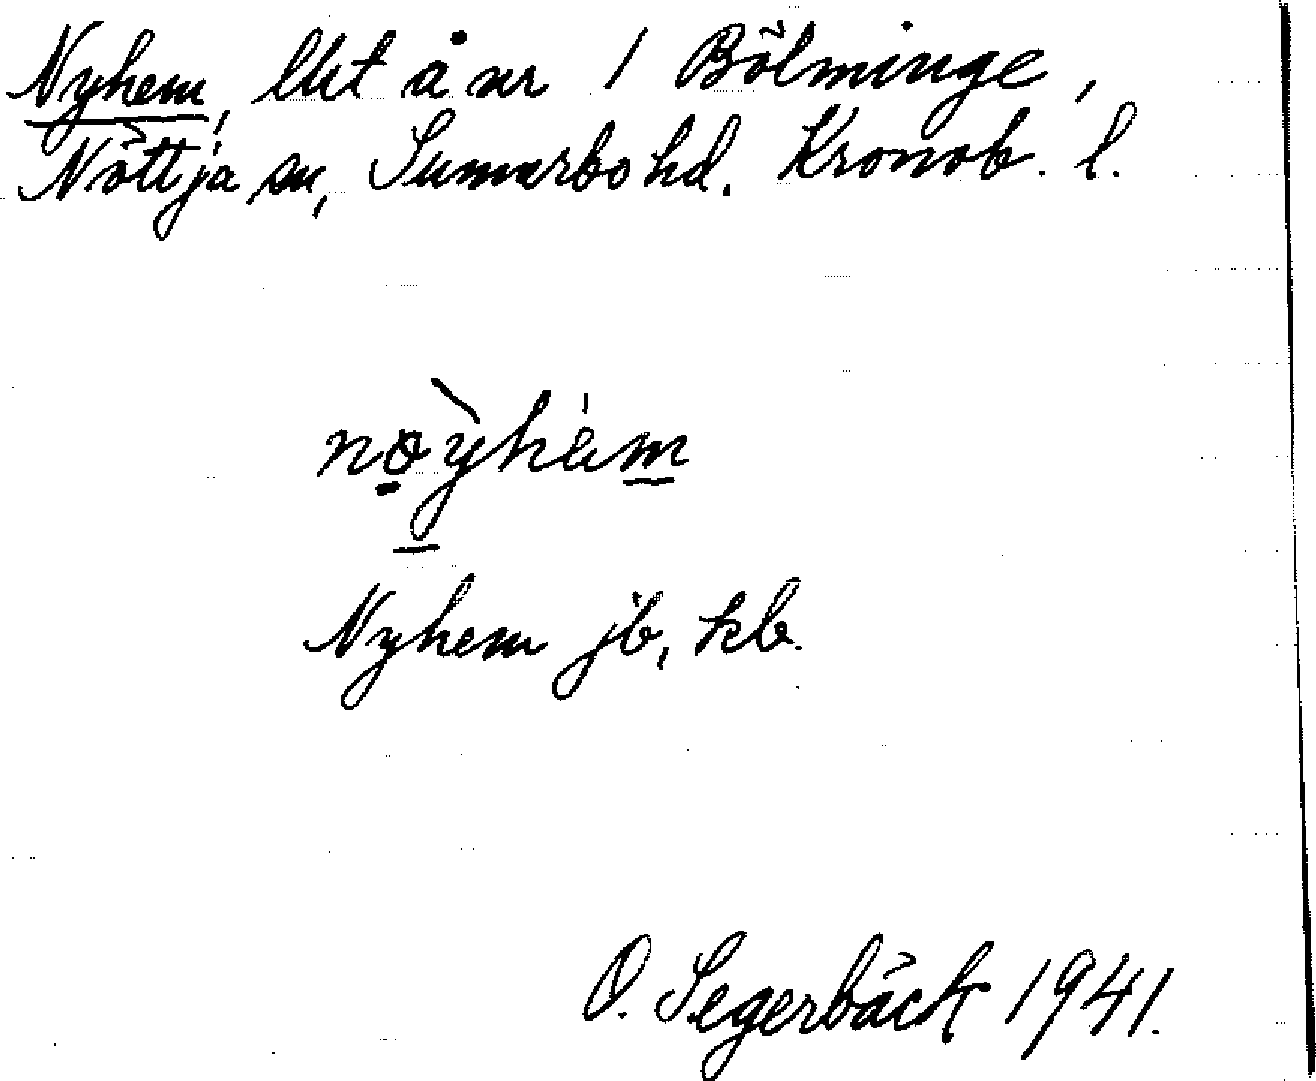 Nyhem, lht å nr 1 Bölminge,
Nöttja sn, Sunnerbo hd. Kronob. l.
nøỳhèm
Nyhem jb, kb.
O. Segerbäck 1941.